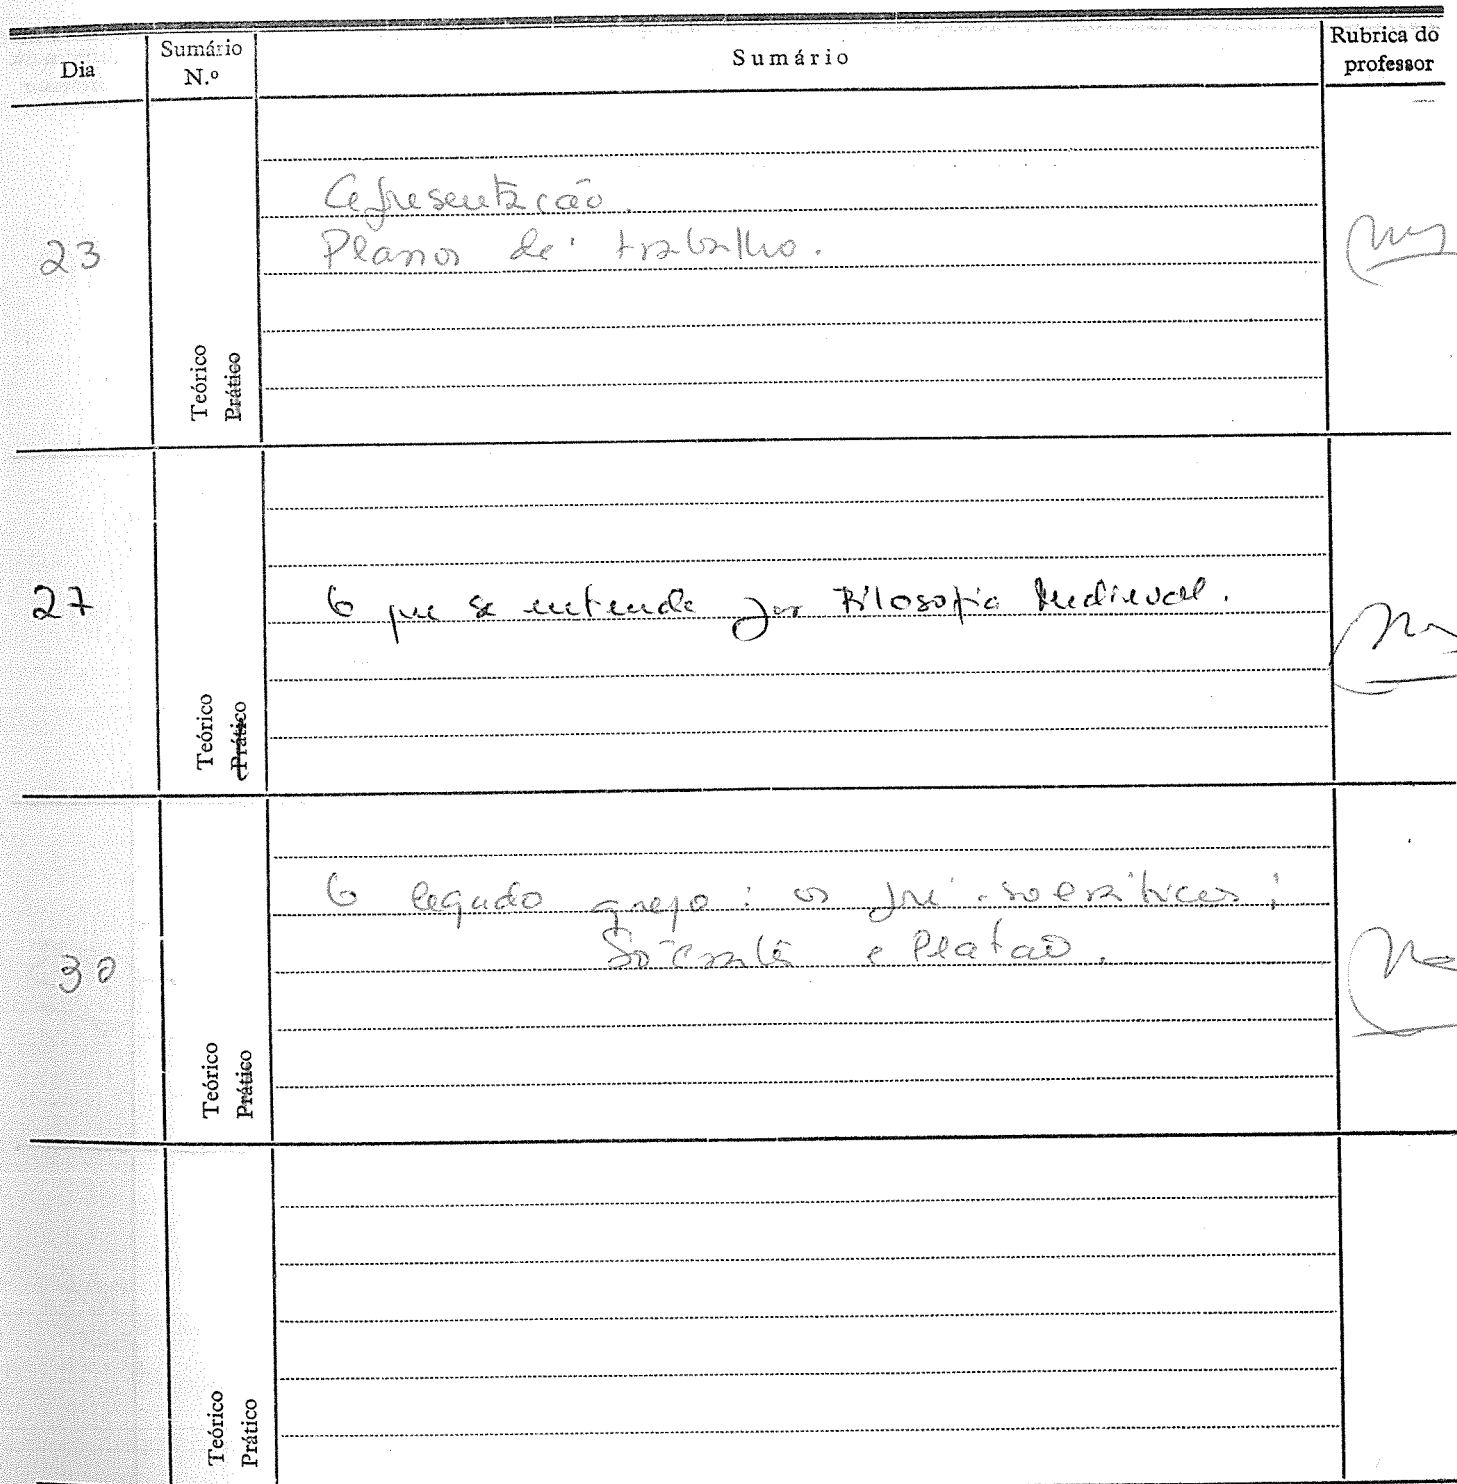 Dia
Sumário
N.º
Sumário
Rubrica do
professor
23
Teórico
Prático
Apresentação.
Planos de trabalho.
27
Teórico
Prático
O que se entende por Filosofia Medieval.
30
Teórico
Prático
O legado grego: os pré-socráticos;
Sócrates e Platão.
Teórico
Prático